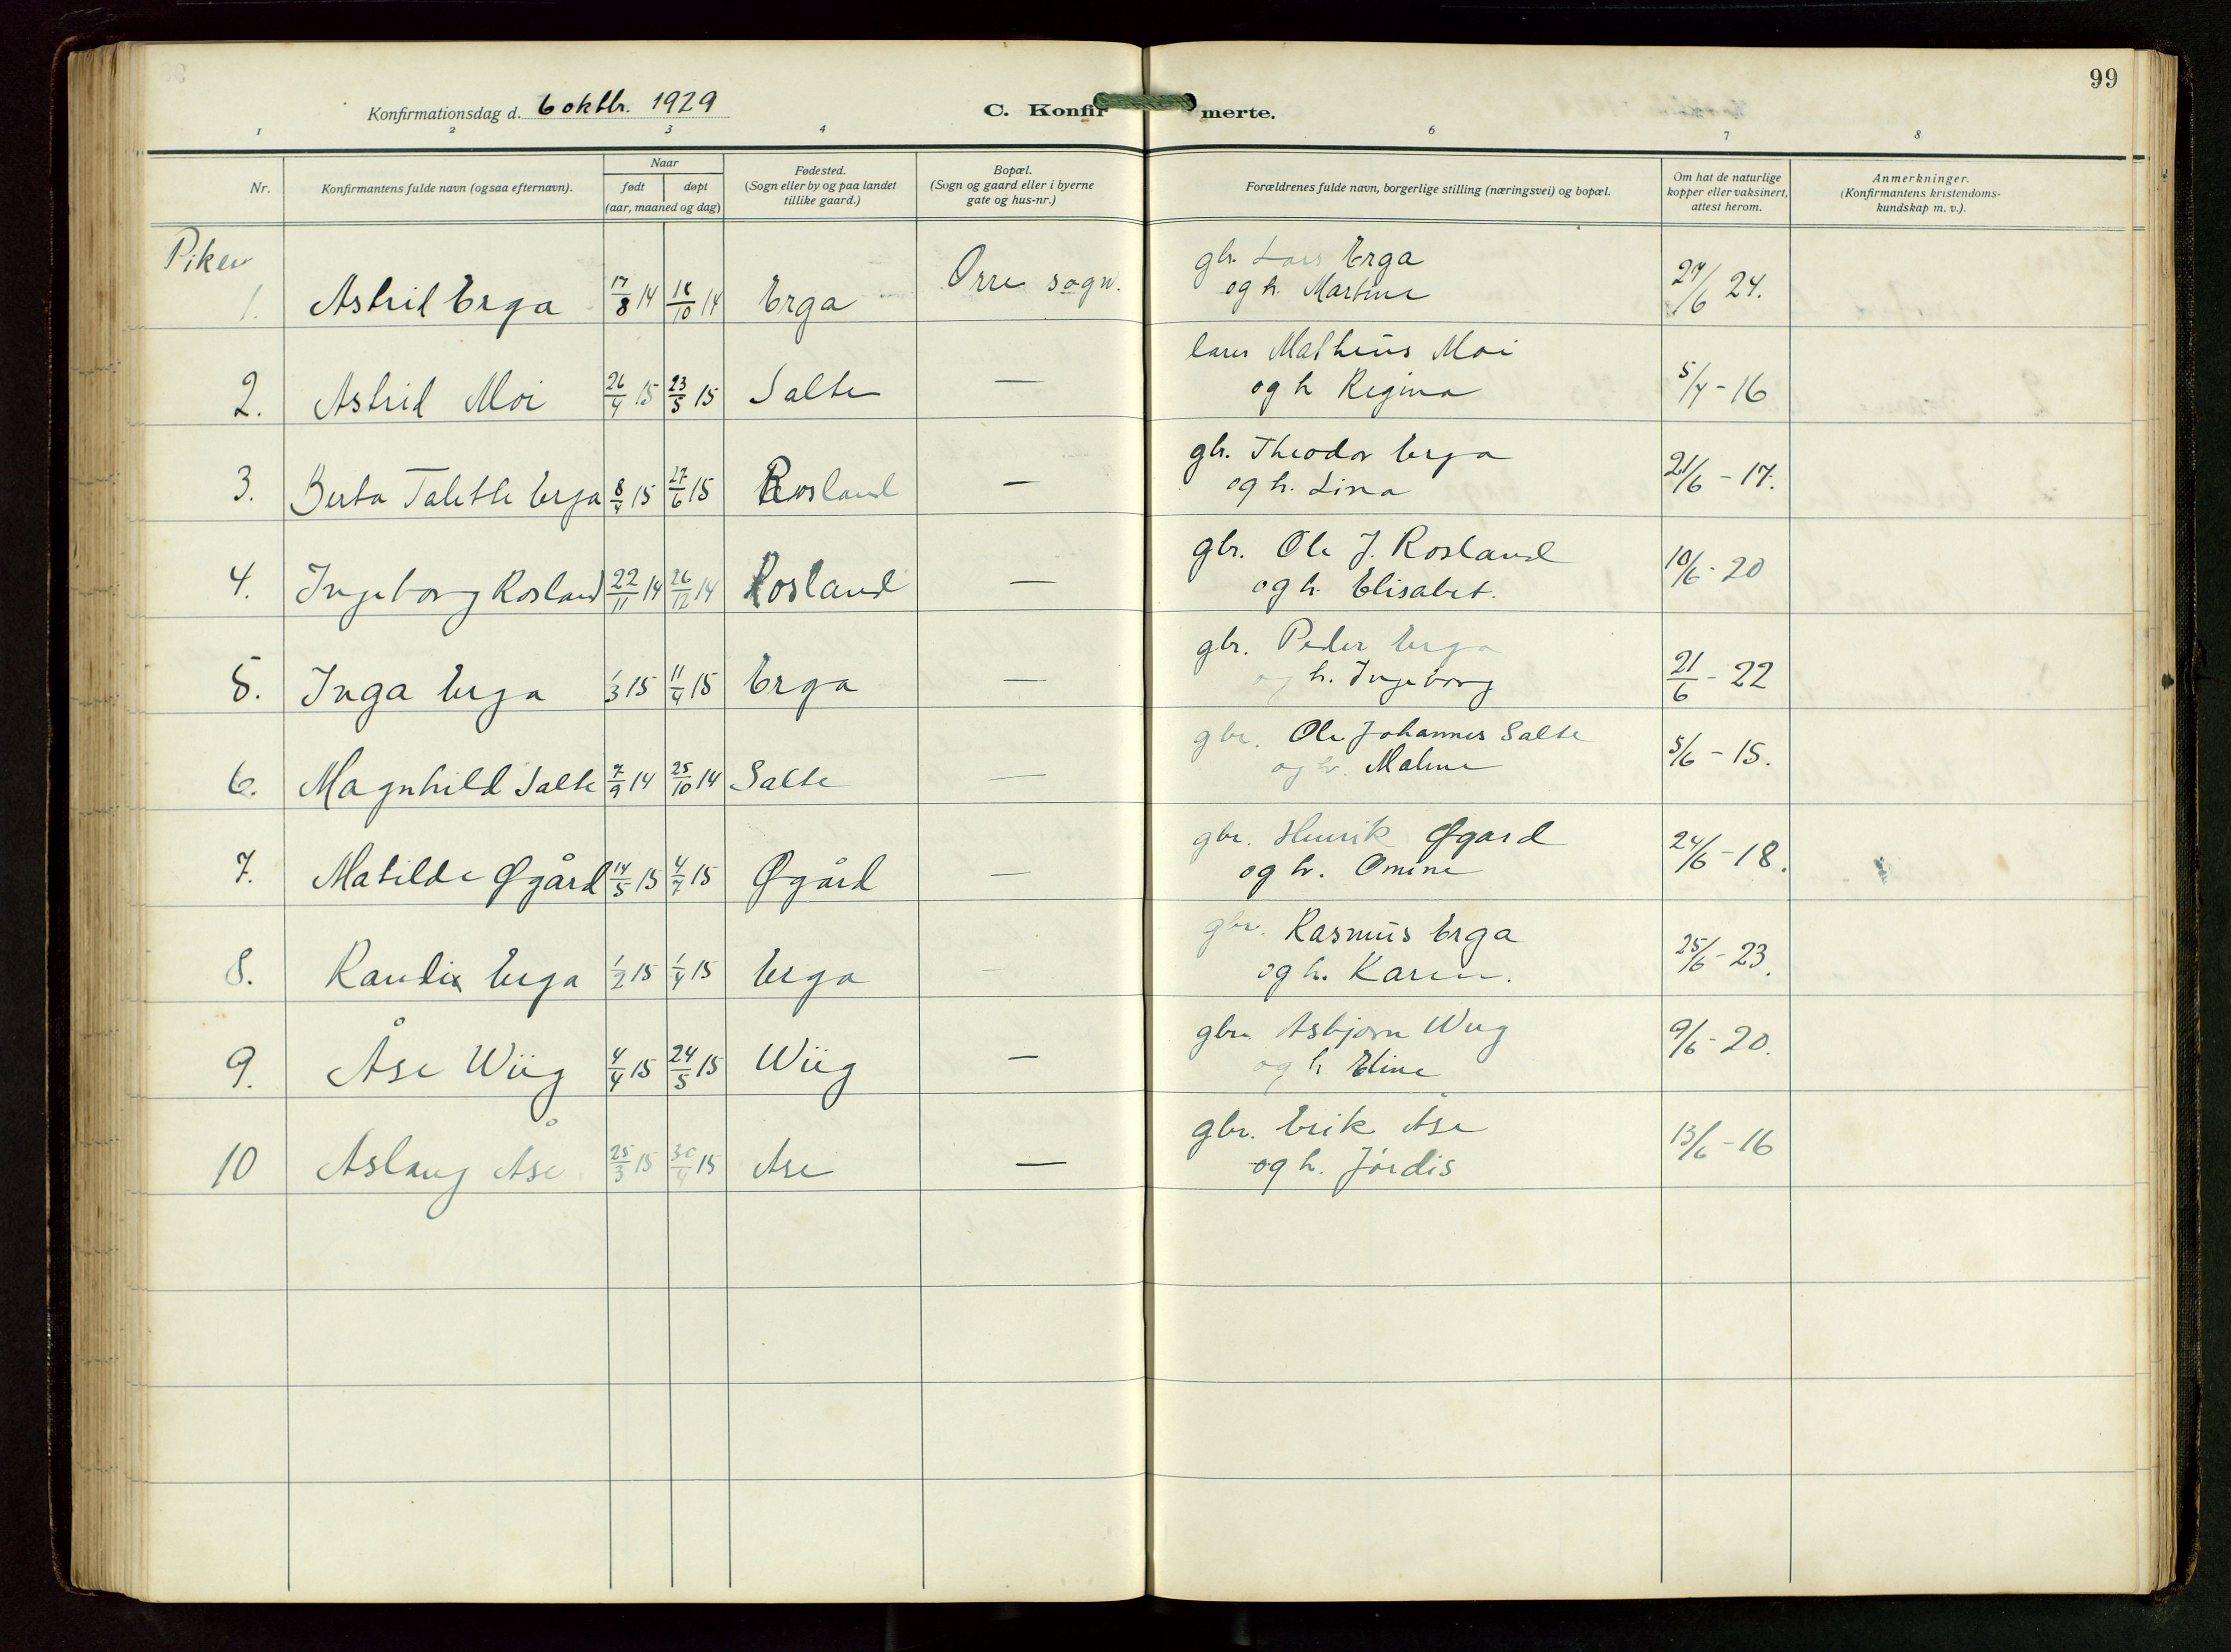 99
Konfirmationsdag d. 6 oktbr. 1929
C. Konfirmerte.
1 2 3 4 6 7 8
Nr.
Konfirmantens fulde navn (ogsaa efternavn).
Naar
født døpt
(aar, maaned og dag)
Fødested.
(Sogn eller by og paa landet
tillike gaard.)
Bopæl.
(Sogn og gaard eller i byerne
gate og hus-nr.)
Forældrenes fulde navn, borgerlige stilling (næringsvei) og bopæl.
Om hat de naturlige
kopper eller vaksinert,
attest herom.
Anmerkninger.
(Konfirmantens kristendoms-
kundskap m. v.).
Piker
gbr. Lars Erga
1. Astrid Erga 17/8 14 18/10 14 Erga Orre sogn.
og h. Martine 24/6 24.
Matheus Moi
2. Astrid Moi 26/4 15 23/5 15 Salte —
og h Regina 5/4 - 16
gbr. Theodor Erga
3. Berta Talette Erga 8/4 15 27/6 15 Rosland —
og h. Lina 21/6 - 17.
gbr. Ole J. Rosland
4. Ingeborg Rosland 22/11 14 26/12 14 Rosland —
og h. Elisabet. 10/6 - 20
gbr. Peder Erga
5. Inga Erga 1/3 15 11/4 15 Erga —
og h. Ingeborg 21/6 - 22
gbr. Ole Johannes Salte
6. Magnhild Salte 7/9 14 25/10 14 Salte —
og h. Malene 5/6 - 15.
gbr. Henrik Øgard
7. Matilde Øgård 14/5 15 4/7 15 Øgård —
og h. Omine 24/6 - 18.
gbr. Rasmus Erga
8. Randi Erga 1/2 15 1/4 15 Erga —
og h. Karen. 25/6 - 23.
gbr. Asbjørn Wiig
9. Åse Wiig 4/4 15 24/5 15 Wiig —
og h Eline 9/6 - 20.
gbr. Erik Åse
10 Aslaug Åse 25/3 15 30/4 15 Åse —
og h. Jórdis 13/6 - 16